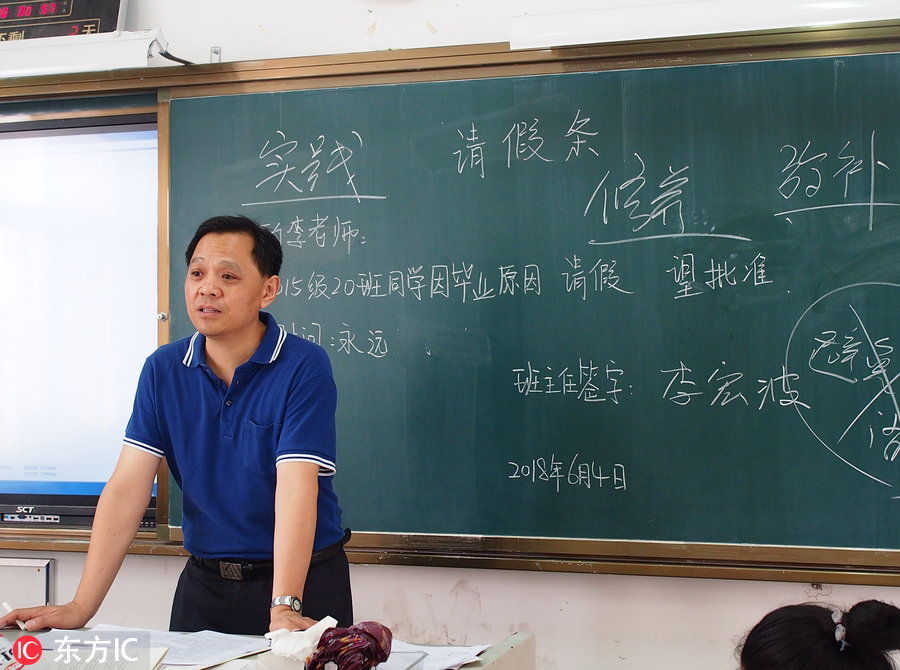 天
实践
请假条
修养
李老师:
15级20班同学因毕业原因 请假 望批准.
间:永远
班主任签字: 李宏波
2018年6月4日
SCT
IC 东方IC